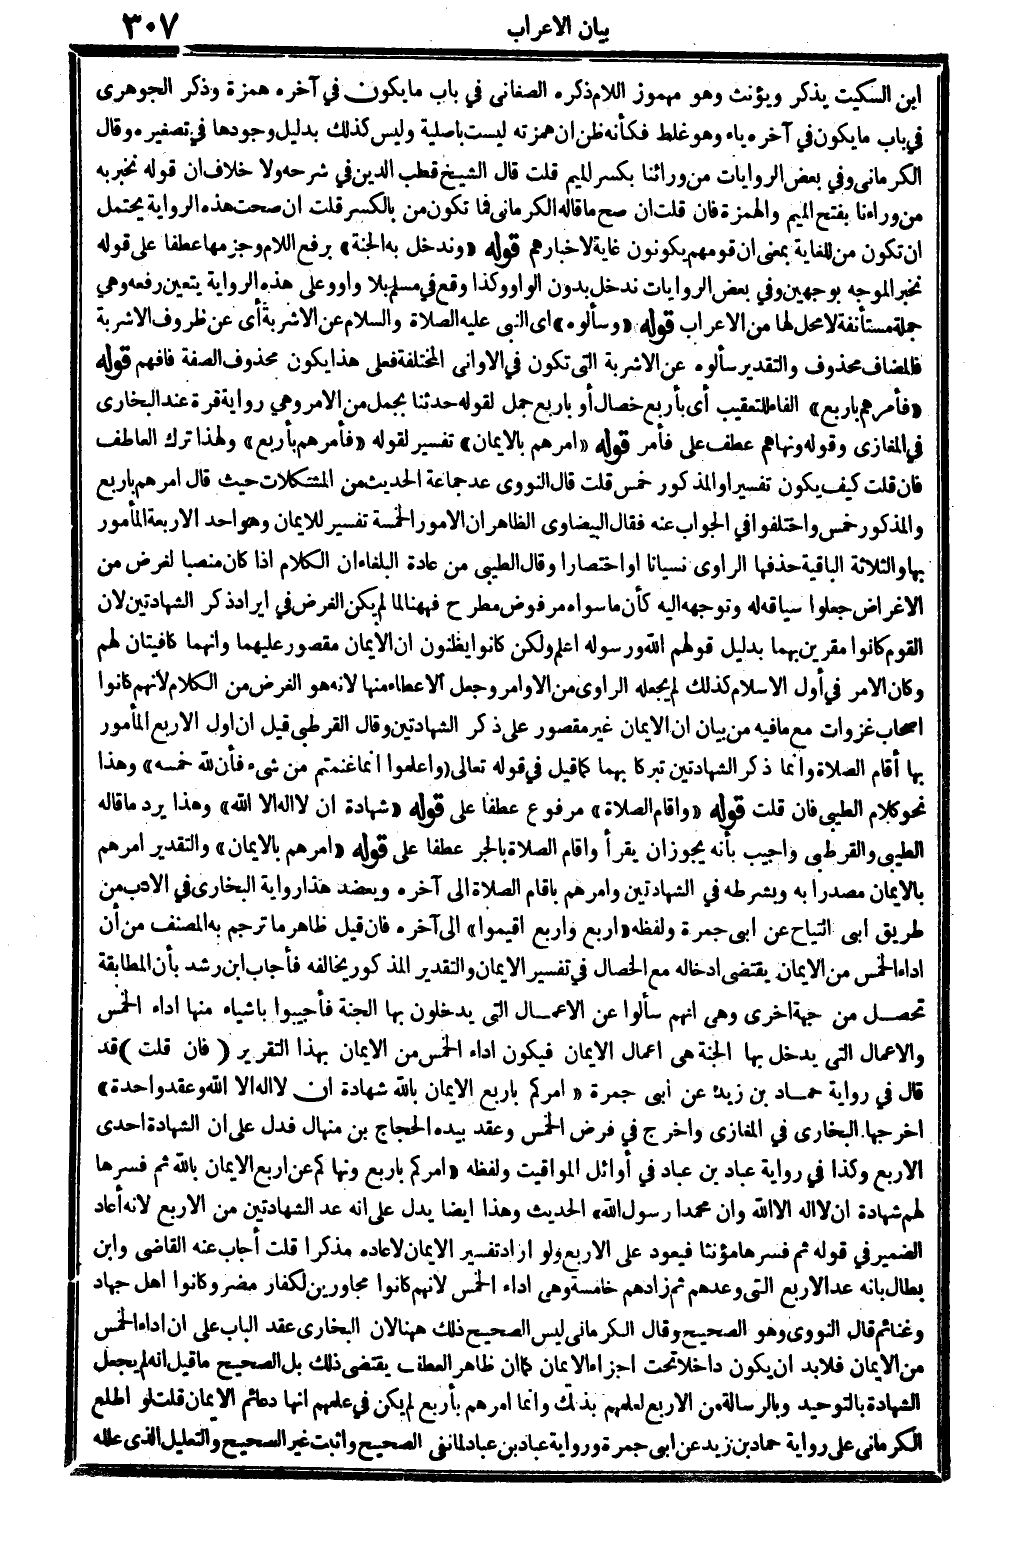 بيان الاعراب ٣٠٧
ابن السكيت يذكر ويؤنث وهو مهموز اللام ذكره الصغانى في باب ما يكون في آخره همزة وذكر الجوهرى
في باب ما يكون في آخره ياء وهو غلط فكأنه ظن ان همزته ليست باصلية وليس كذلك بدليل وجودها في تصغيره وقال
الكرمانى وفي بعض الروايات من ورائنا بكسر الميم قلت قال الشيخ قطب الدين في شرحه ولا خلاف ان قوله نخبر به
من وراءنا بفتح الميم والهمزة فان قلت ان صح ما قاله الكرمانى فما تكون من بالكسر قلت ان صحت هذه الرواية يحتمل
ان تكون من للغاية بمعنى ان قومهم يكونون غاية لاخبارهم قوله «وندخل به الجنة» برفع اللام وجزمها عطفا على قوله
نخبر الموجه بوجهين وفي بعض الروايات ندخل بدون الواو وكذا وقع في مسلم بلا واو وعلى هذه الرواية يتعين رفعه وهي
جملة مستأنفة لا محل لها من الاعراب قوله «وسألوه» اى النبى عليه الصلاة والسلام عن الاشربة أى عن ظروف الاشربة
فالمضاف محذوف والتقدير سألوه عن الاشربة التى تكون في الاوانى المختلفة فعلى هذا يكون محذوف الصفة فافهم قوله
«فأمرهم باربع» الفاء للتعقيب أى بأربع خصال أو باربع جمل لقوله حدثنا بجمل من الامر وهي رواية قرة عند البخارى
في المغازى وقوله ونهاهم عطف على فأمر قوله «امرهم بالايمان» تفسير لقوله «فأمرهم بأربع» ولهذا ترك العاطف
فان قلت كيف يكون تفسيرا والمذكور خمس قلت قال النووى عد جماعة الحديث من المشكلات حيث قال امرهم باربع
والمذكور خمس واختلفوا في الجواب عنه فقال البيضاوى الظاهر ان الامور الخمسة تفسير للايمان وهو احد الاربعة المأمور
بها والثلاثة الباقية حذفها الراوى نسيانا او اختصارا وقال الطيبى من عادة البلغاء ان الكلام اذا كان منصبا لغرض من
الاغراض جعلوا سياقه له وتوجهه اليه كأن ما سواه مرفوض مطرح فههنا لما لم يكن الغرض في ايراد ذكر الشهادتين لان
القوم كانوا مقرين بهما بدليل قولهم الله ورسوله اعلم ولكن كانوا يظنون ان الايمان مقصور عليهما وانهما كافيتان لهم
وكان الامر في أول الاسلام كذلك لم يجعله الراوى من الاوامر وجعل الاعطاء منها لانه هو الغرض من الكلام لانهم كانوا
اصحاب غزوات مع ما فيه من بيان ان الايمان غير مقصور على ذكر الشهادتين وقال القرطبى قيل ان اول الاربع المأمور
بها أقام الصلاة وانما ذكر الشهادتين تبركا بهما كما قيل في قوله تعالى (واعلموا انما غنمتم من شىء فأن لله خمسه» وهذا
نحو كلام الطيبى فان قلت قوله «واقام الصلاة» مرفوع عطفا على قوله «شهادة ان لا اله الا الله» وهذا يرد ما قاله
الطيبى والقرطبى واجيب بأنه يجوز ان يقرأ واقام الصلاة بالجر عطفا على قوله «امرهم بالايمان» والتقدير امرهم
بالايمان مصدرا به وبشرطه في الشهادتين وامرهم باقام الصلاة الى آخره ويعضد هذا رواية البخارى في الادب من
طريق ابى التياح عن ابى جمرة ولفظه «اربع واربع اقيموا» الى آخره فان قيل ظاهر ما ترجم به المصنف من أن
اداء الخمس من الايمان يقتضى ادخاله مع الخصال في تفسير الايمان والتقدير المذكور يخالفه فأجاب ابن رشد بأن المطابقة
تحصل من جهة اخرى وهى انهم سألوا عن الاعمال التى يدخلون بها الجنة فأجيبوا باشياء منها اداء الخمس
والاعمال التى يدخل بها الجنة هى اعمال الايمان فيكون اداء الخمس من الايمان بهذا التقرير (فان قلت) قد
قال في رواية حماد بن زيد عن ابى جمرة «امركم باربع الايمان بالله شهادة ان لا اله الا الله وعقد واحدة»
اخرجها البخارى في المغازى واخرج في فرض الخمس وعقد بيده الحجاج بن منهال فدل على ان الشهادة احدى
الاربع وكذا في رواية عباد بن عباد في أوائل المواقيت ولفظه «امركم باربع ونهاكم عن اربع الايمان بالله ثم فسرها
لهم شهادة ان لا اله الا الله وان محمدا رسول الله» الحديث وهذا ايضا يدل على انه عد الشهادتين من الاربع لانه أعاد
الضمير في قوله ثم فسرها مؤنثا فيعود على الاربع ولو اراد تفسير الايمان لاعاده مذكرا قلت أجاب عنه القاضى وابن
بطال بانه عد الاربع التى وعدهم ثم زادهم خامسة وهى اداء الخمس لانهم كانوا مجاورين لكفار مضر وكانوا اهل جهاد
وغنائم قال النووى وهو الصحيح وقال الكرمانى ليس الصحيح ذلك ههنا لان البخارى عقد الباب على ان اداء الخمس
من الايمان فلابد ان يكون داخلا تحت اجزاء الايمان كما ان ظاهر العطف يقتضى ذلك بل الصحيح ما قيل انه لم يجعل
الشهادة بالتوحيد وبالرسالة من الاربع لعلمهم بذلك وانما امرهم بأربع لم يكن في علمهم انها دعائم الايمان قلت لو اطلع
الكرمانى على رواية حماد بن زيد عن ابى جمرة ورواية عباد بن عباد لما نفى الصحيح واثبت غير الصحيح والتعليل الذى علله